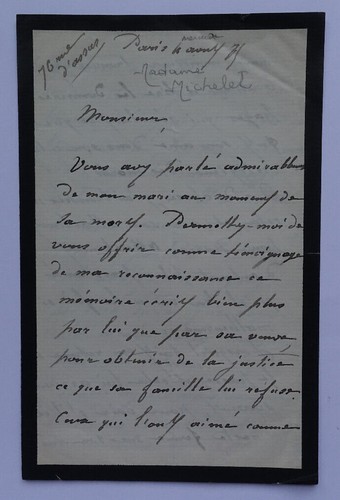 76 rue
d'assas
Paris 6 avril 75
Madame
Michelet
Monsieur
Vous avez parlé admirablemt
de mon mari au moment de
sa mort. Permettez-moi de
vous offrir comme témoignage
de ma reconnaissance ce
mémoire écrit bien plus
par lui que par sa veuve,
pour obtenir de la justice
ce que sa famille lui refuse.
Ceux qui l'ont aimé comme